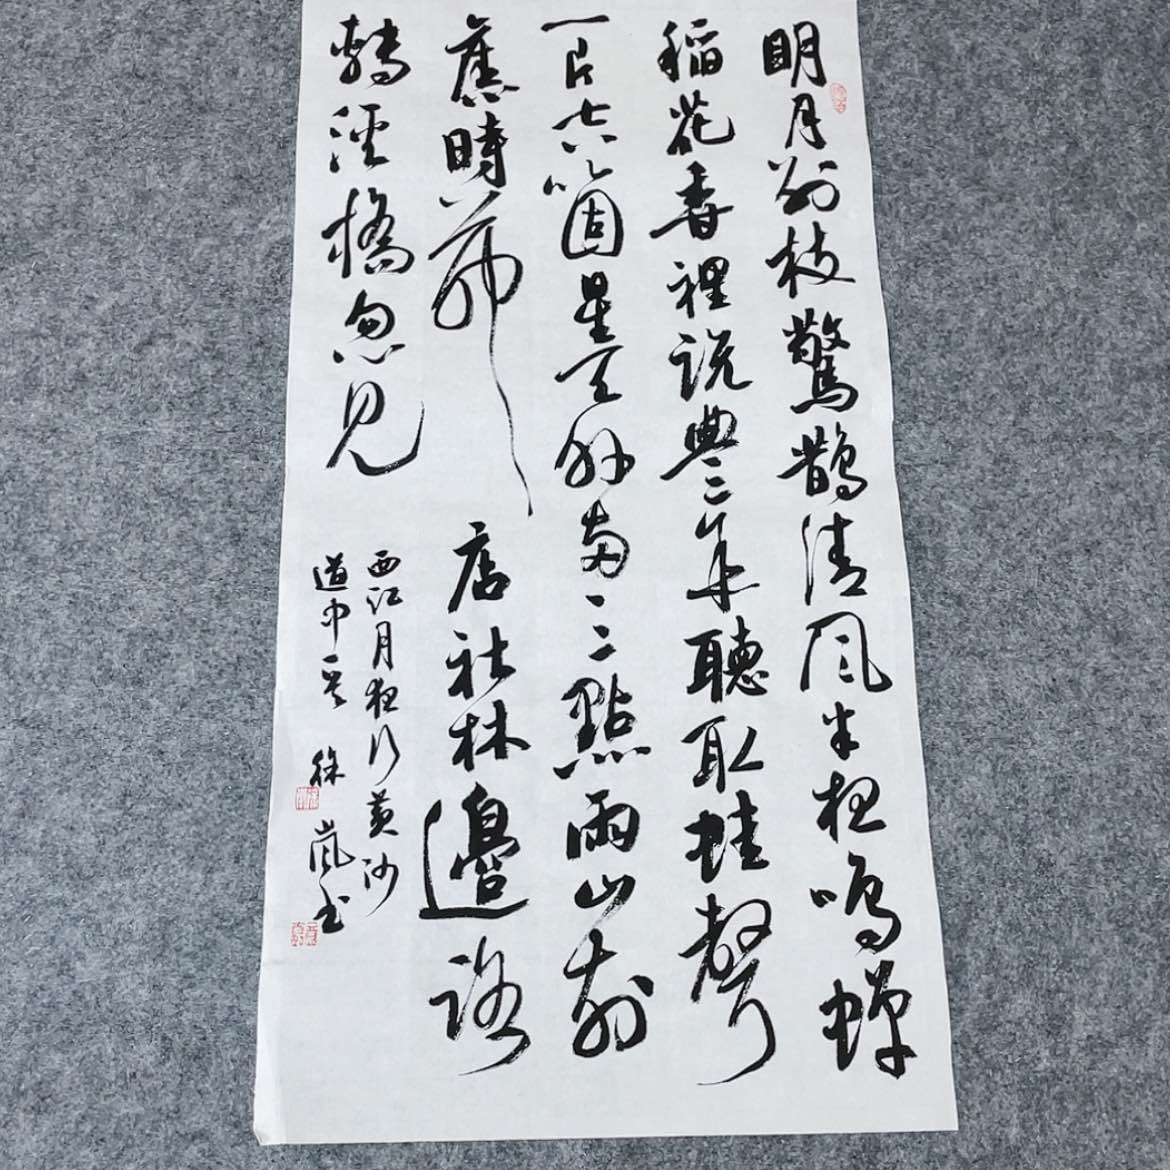 明月别枝驚鵲清風半夜鳴蟬
稻花香裡説豐年聽取蛙聲
一片七八箇星天外兩三點雨山前
舊時茅店社林邊路
轉溪橋忽見
西江月夜行黄沙
道中一首 徐嵐书